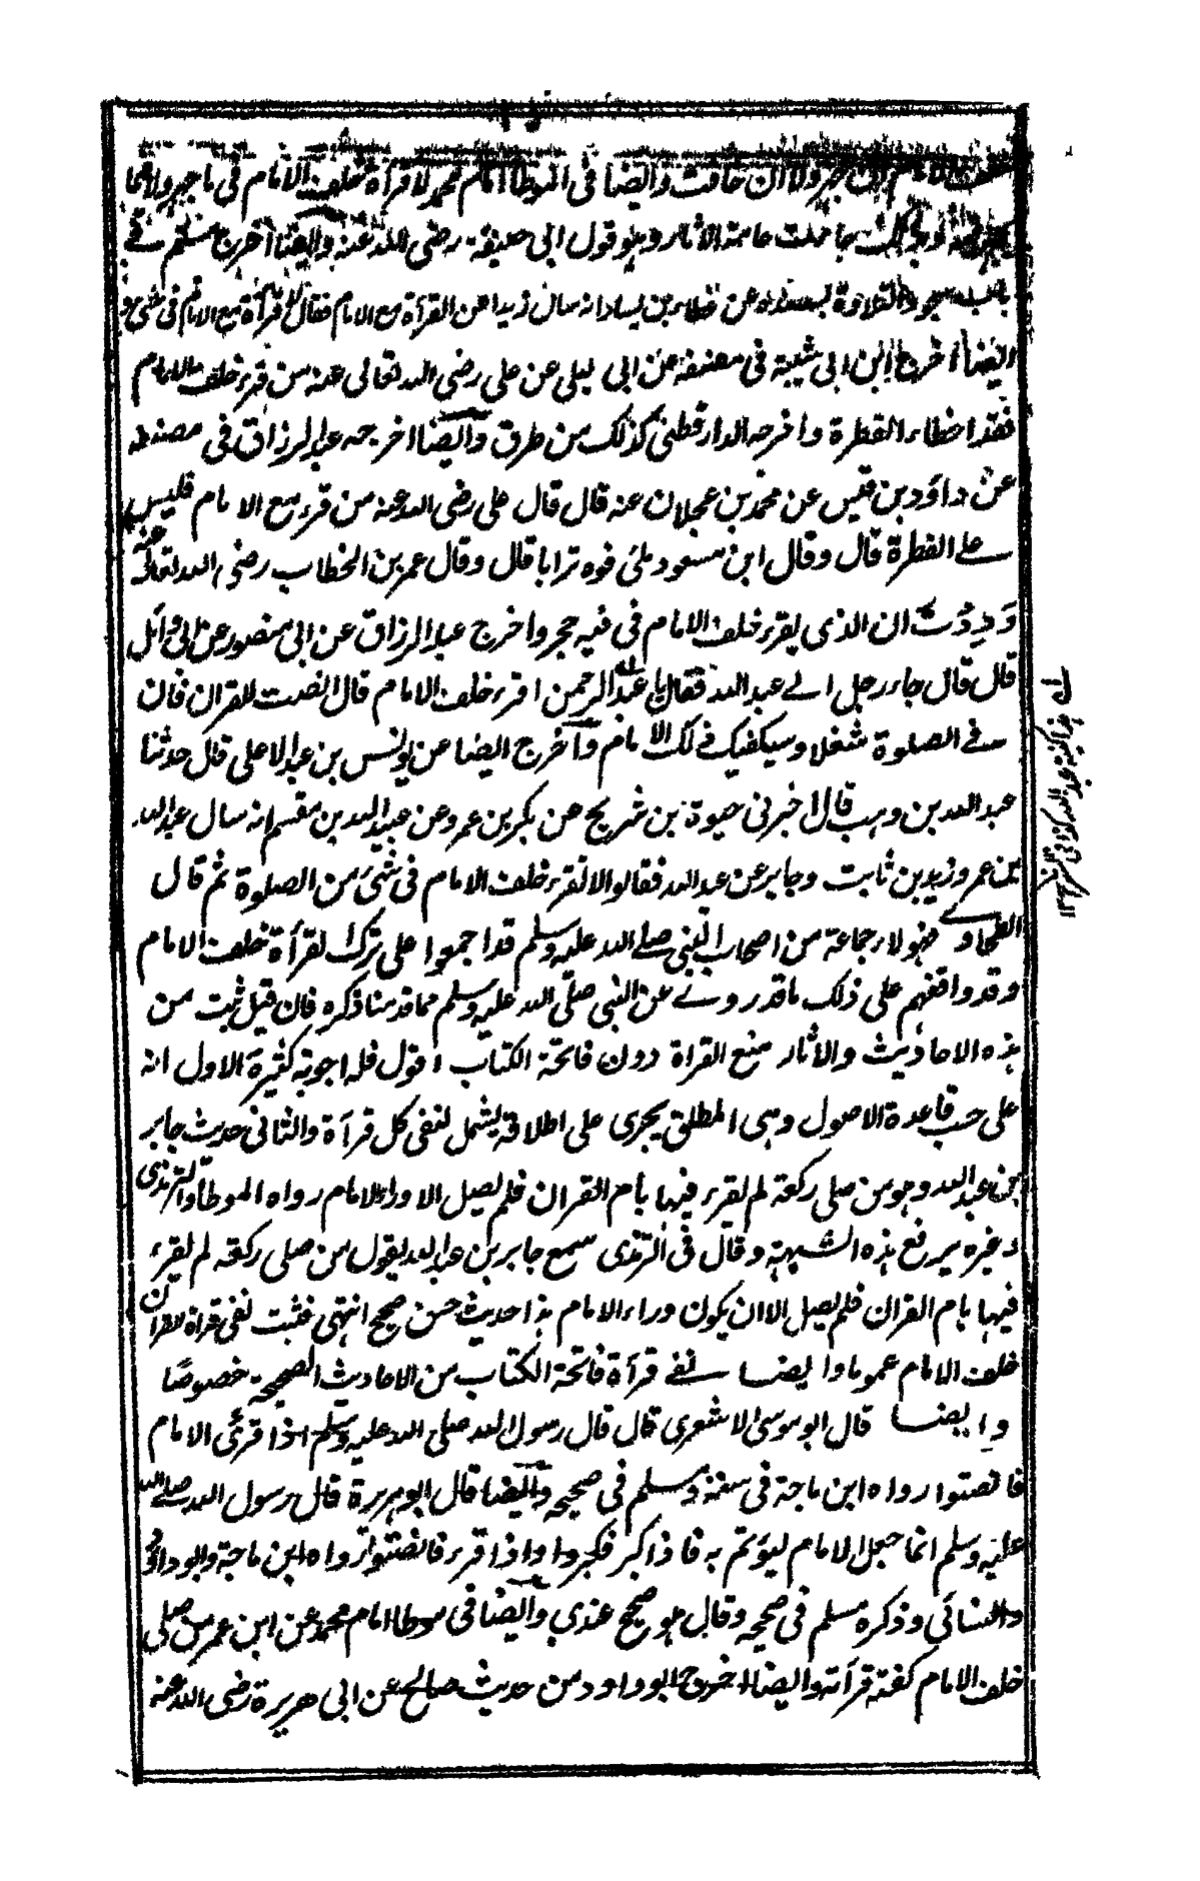 خلف الامام ان جهر ولا ان خافت وايضا فى الموطا امام محمد لا قرآة خلف الامام فى ما جهر ولا فيما
لم يجهر بذلك جاءت عامة الاثار وهو قول ابى حنيفة رضى الله عنه وايضا اخرج مسلم فے
باب سجود التلاوة بسنده عن عطاء بن يسار انه سال زيدا عن القرآة مع الامام فقال لا قرآة مع الامام فى شئ و
ايضا اخرج ابن ابى شيبة فى مصنفه عن ابى ليلى عن على رضى الله تعالى عنه من قرء خلف الامام
فقد اخطاء الفطرة واخرجه الدارقطنى كذلك من طرق وايضا اخرجه عبد الرزاق فى مصنفه
عن داؤد بن قيس عن محمد بن عجلان عنه قال قال على رضى الله عنه من قرء مع الامام فليس
علے الفطرة قال وقال ابن مسعود ملئ فوه ترابا قال وقال عمر بن الخطاب رضى الله تعالے عنه
وددت ان الذى يقرء خلف الامام فى فيه حجر واخرج عبد الرزاق عن ابى منصور عن ابى وائل
قال قال جاء رجل الے عبد الله فقال يا عبد الرحمن اقرء خلف الامام قال انصت للقران فان
فے الصلوة شغلا وسيكفيك ذلك الامام واخرج ايضا عن يونس بن عبد الاعلى قال حدثنا
عبد الله بن وهب قال اخبرنى حيوة بن شريح عن بكر بن عمرو عن عبيد الله بن مقسم انه سال عبد الله
بن عمر وزيد بن ثابت وجابر عن عبد الله فقالوا لا تقرء خلف الامام فى شئ من الصلوة ثم قال
الطحاوے فهولاء جماعة من اصحاب النبى صلے الله عليه وسلم قد اجمعوا على ترك القرآة خلف الامام
وقد وافقهم على ذلك ما قد روے عن النبى صلى الله عليه وسلم مما قدمنا ذكره فان قيل ثبت من
هذه الاحاديث والاثار منع القراة دون فاتحة الكتاب اقول فله اجوبة كثيرة الاول انه
على حسب قاعدة الاصول وهى المطلق يجرى على اطلاقه يشمل لنفى كل قرآة والثانى حديث جابر
بن عبد الله وهو من صلى ركعة لم يقرء فيها بام القران فلم يصل الا وراء الامام رواه الموطا والترمذى
وغيره يرفع هذه الشبهة وقال فى الترمذى سمع جابر بن عبد الله يقول من صلى ركعة لم يقرء
فيها بام القران فلم يصل الا ان يكون وراء الامام هذا حديث حسن صحيح انتهى فثبت نفى قراة القران
خلف الامام عموما وايضا نفے قرآة فاتحة الكتاب من الاحاديث الصحيحة خصوصًا
وايضا قال ابو موسى الاشعرى قال قال رسول الله صلى الله عليه وسلم اذا قرئ الامام
فانصتوا رواه ابن ماجة فى سننه ومسلم فى صحيحه وايضا قال ابو هريرة قال رسول الله صلے الله
عليه وسلم انما جعل الامام ليؤتم به فاذا كبر فكبروا واذا قرء فانصتوا رواه ابن ماجة وابو داؤد
والنسائى وذكره مسلم فى صحيحه وقال هو صحيح عندى وايضا فى موطا امام محمد عن ابن عمر من صلى
خلف الامام كفته قرآته وايضا اخرج ابو داود من حديث صالح عن ابى هريرة رضى الله عنه